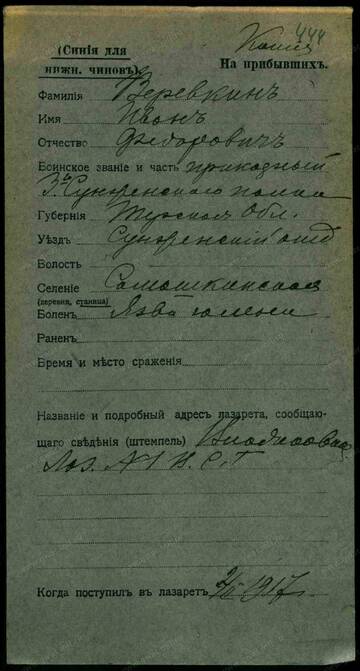 444
Копія
(Синія для
нижн. чиновъ).
На прибывшихъ.
Фамилія Веревкинъ
Имя Иванъ
Отчество Федоровичъ
Воинское званіе и часть приказный
3го Сунженского полка
Губернія Терская Обл.
Уѣздъ Сунженскій отд
Волость
Селеніе Самашкинская
(деревня, станица)
Боленъ Язва голени
Раненъ
Время и мѣсто сраженія
Названіе и подробный адресъ лазарета, сообщаю-
щаго свѣдѣнія (штемпель)
Лаз. №1 В. С. Г
Когда поступилъ въ лазаретъ 1917